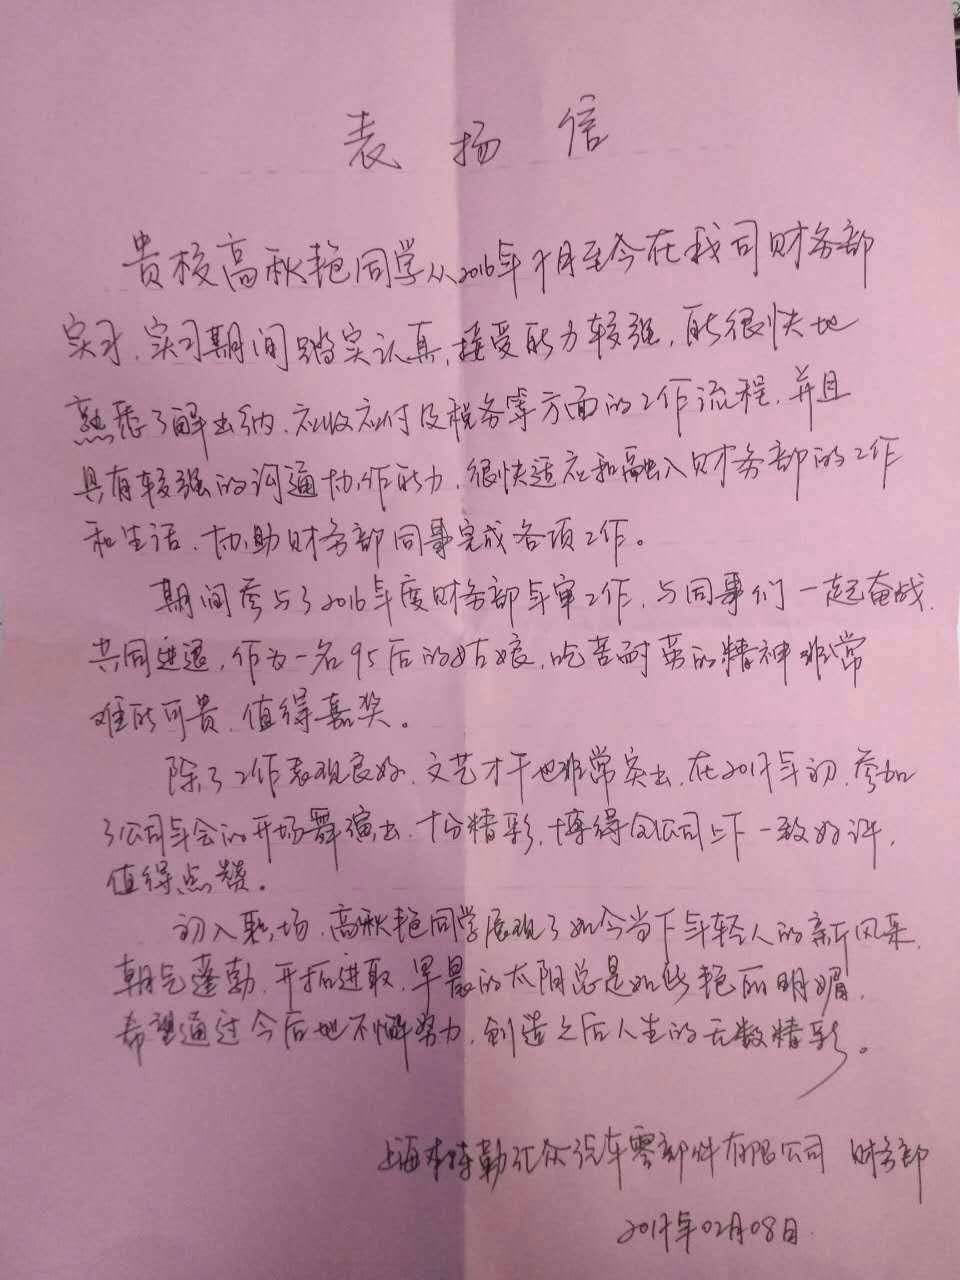 表扬信
贵校高秋艳同学从2016年9月至今在我司财务部
实习，实习期间踏实认真，接受能力较强，能很快地
熟悉了解出纳、应收应付及税务等方面的工作流程，并且
具有较强的沟通协作能力，很快适应和融入财务部的工作
和生活、协助财务部同事完成各项工作。
期间参与了2016年度财务部年审工作，与同事们一起奋战，
共同进退，作为一名95后的姑娘，吃苦耐劳的精神非常
难能可贵，值得嘉奖。
除了工作表现良好，文艺才干也非常突出，在2017年初，参加
了公司年会的开场舞演出，十分精彩，博得全公司上下一致好评，
值得点赞。
初入职场，高秋艳同学展现了如今当下年轻人的新风采，
朝气蓬勃、开拓进取，早晨的太阳总是如此艳丽明媚，
希望通过今后地不懈努力，创造之后人生的无数精彩。
上海本特勒汇众汽车零部件有限公司 财务部
2017年02月08日